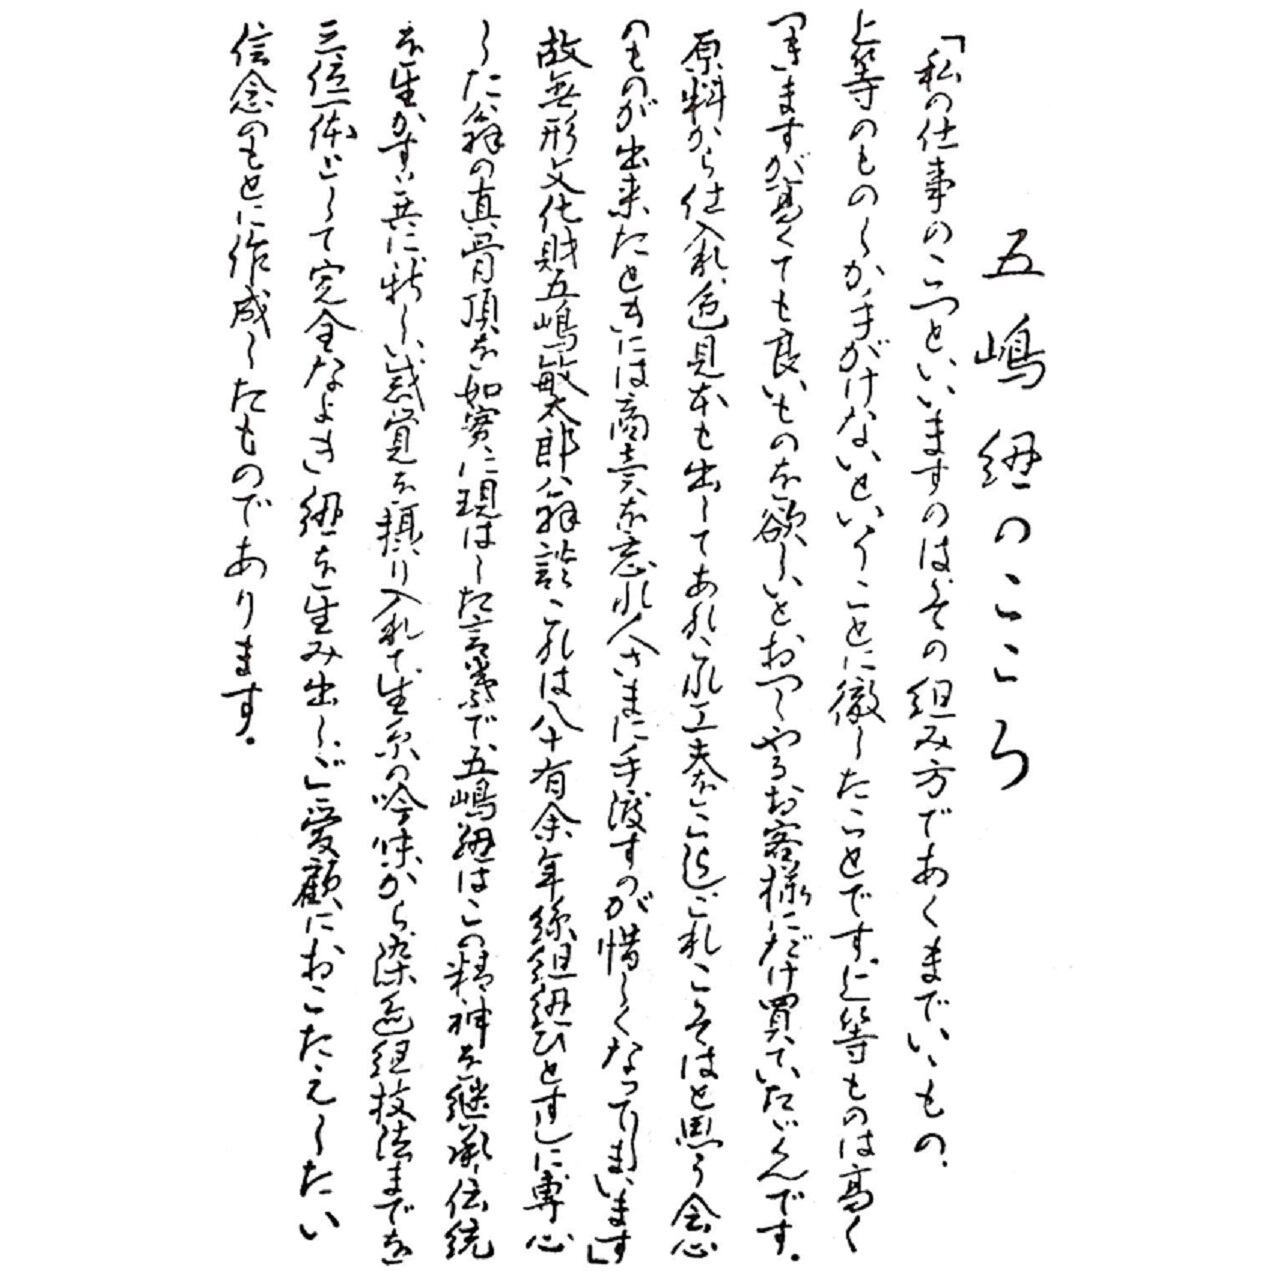 五嶋紐のこころ
「私の仕事のこつといいますのは、その組み方であくまでいいもの、
上等のものしか手がけないということに徹したことです。上等ものは高く
つきますが高くても良いものを欲しいとおっしゃるお客様にだけ買っていただくんです。
原料から仕入れ、色見本も出してあれこれ工夫をこらしこれこそはと思う会心
のものが出来たときには商売を忘れ人さまに手渡すのが惜しくなってしまいます」
故無形文化財五嶋敏太郎翁談これは八十有余年絲組紐ひとすじに専心
した翁の真骨頂を如実に現はした言葉で五嶋紐はこの精神を継承し伝統
を生かすと共に新しい感覚を摂り入れて、生糸の吟味から染色組技法までを
三位一体として完全なよき紐を生み出し、ご愛顧におこたえしたい
信念のもとに作成したものであります。